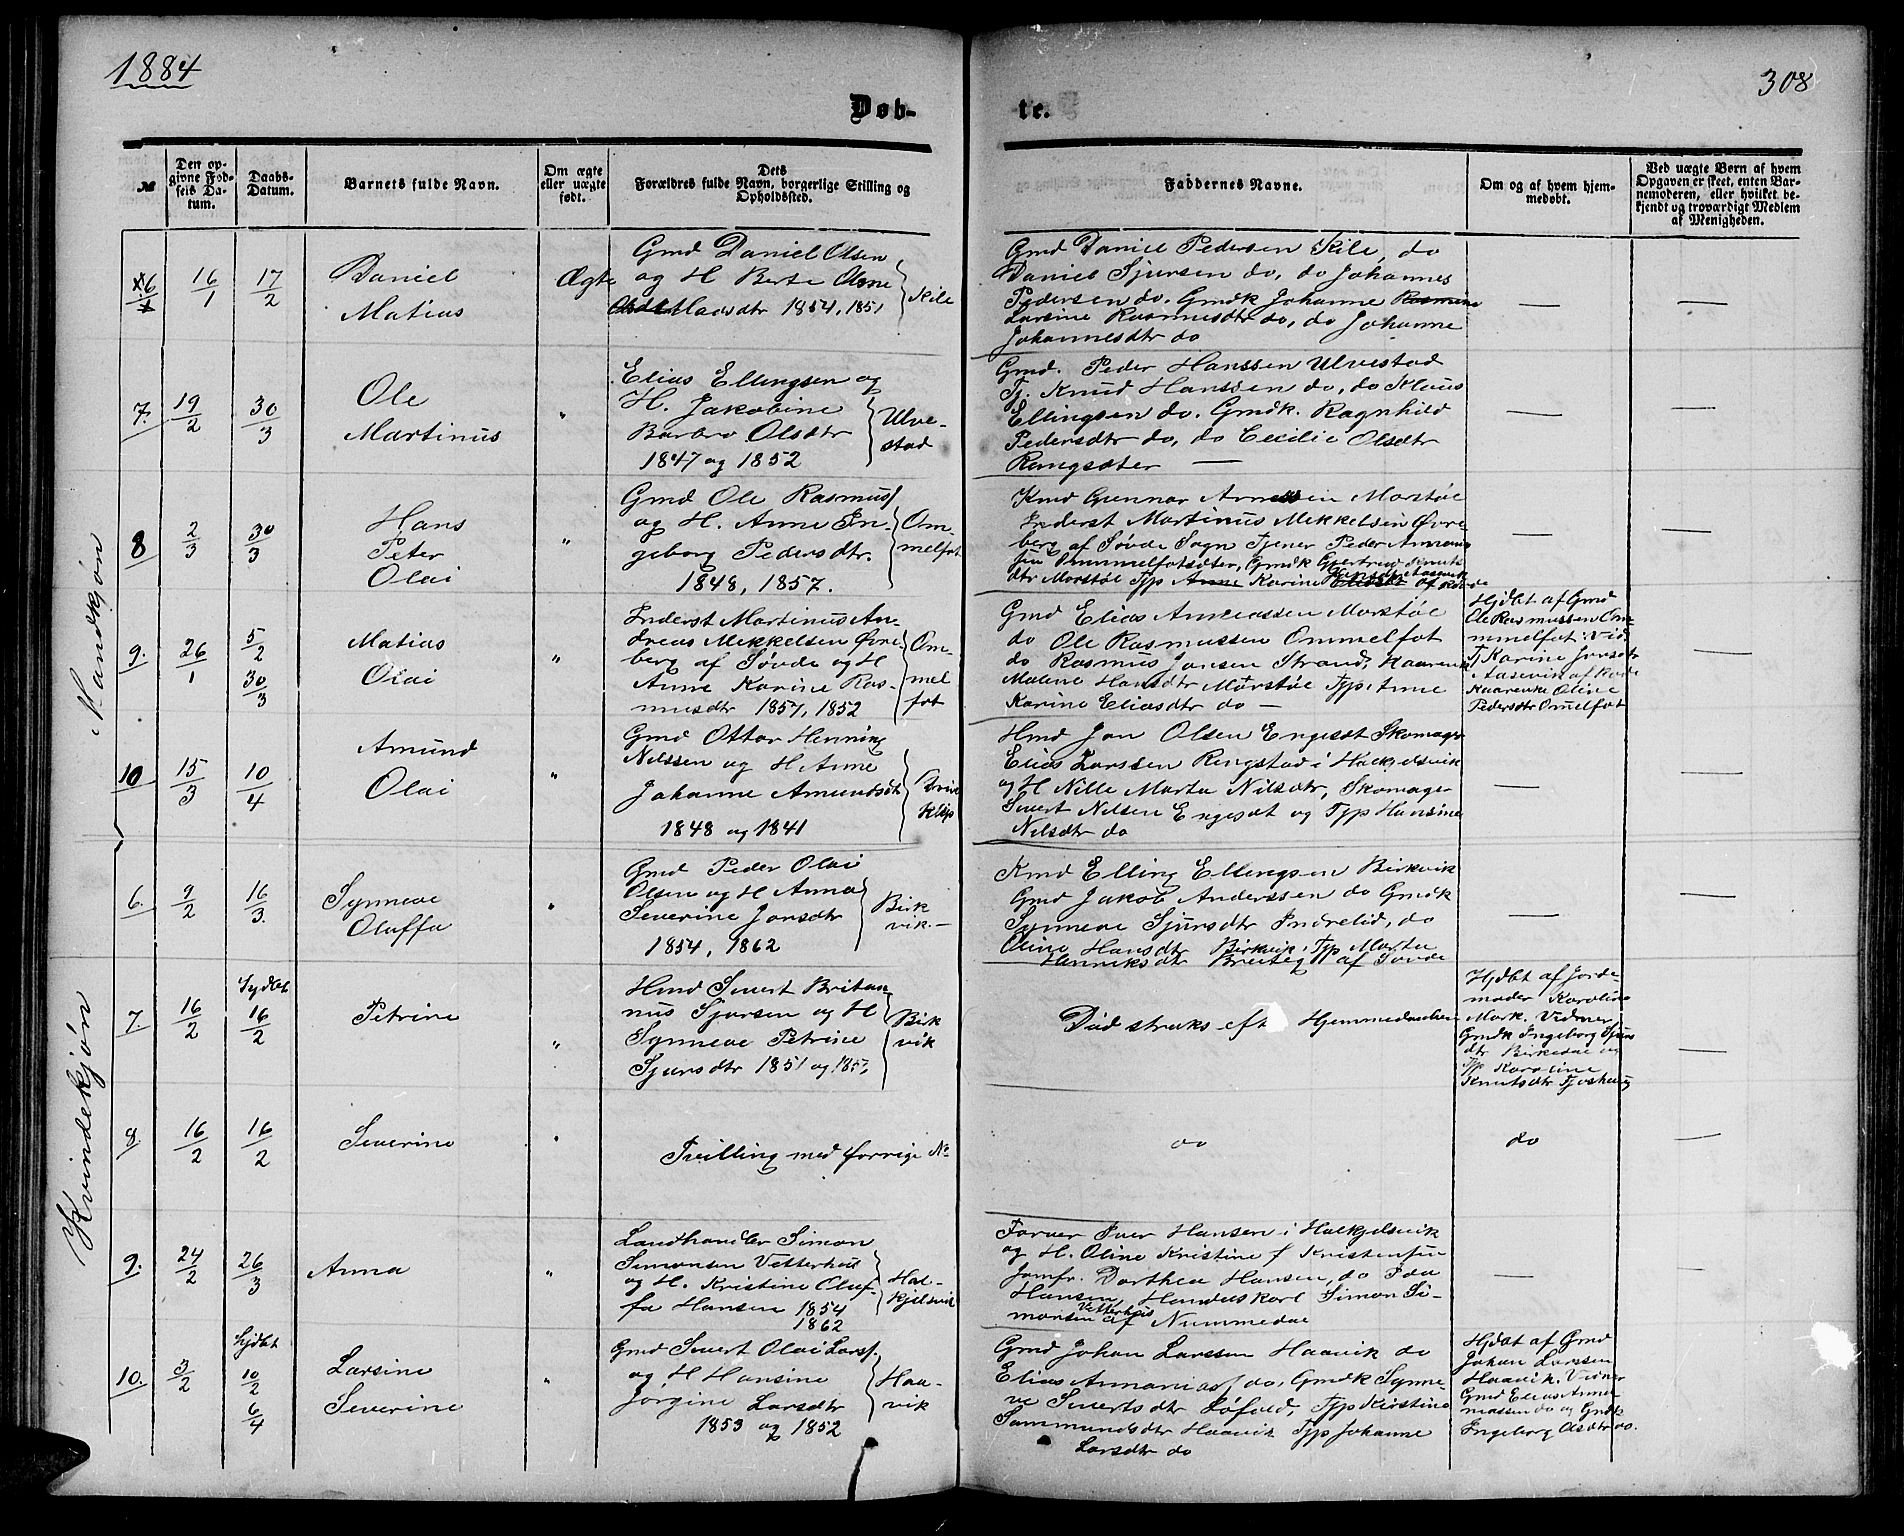 1884
308
Døb-
te.
№
Den op-
givne Fød-
sels Da-
tum.
Daabs-
Datum.
Barnets fulde Navn.
Om ægte
eller uægte
født.
Dets
Forældres fulde Navn, borgerlige Stilling og
Opholdssted.
Faddernes Navne.
Om og af hvem hjem-
medøbt.
Ved uægte Børn af hvem
Opgaven er skeet, enten Bar-
nemoderen, eller hvilket be-
kjendt og troværdigt Medlem
af Menigheden.
Mandkjøn
6
16/1
17/2
Daniel
Matias
Ægte
Gmd Daniel Olsen
og H Berte Olsne
Madsdtr 1854, 1851
Kile
Gmd Daniel Pedersen Kile, do
Daniel Sjursen do, do Johannes
Pedersen do. Gmdk Johanne Rasmine
Larsine Rasmusdtr do, do Johanne
Johannesdtr do
—
—
7.
19/2
30/3
Ole
Martinus
"
Elias Ellingsen og
H. Jakobine
Barbro Olsdtr
1847 og 1852
Ulve-
stad
Gmd. Peder Hanssen Ulvestad
Tj. Knud Hanssen do, do Klaus
Ellingsen do. Gmdk. Ragnhild
Pedersdtr do, do Cecilie Olsdtr
Rangsæter —
—
—
8
2/3
30/3
Hans
Peter
Olai
"
Gmd Ole Rasmus
og H. Anne In-
geborg Pedersdtr.
1848, 1857.
Om-
melfot
Kmd Gunnar Arnesen Morstøl
Inderst Martinus Mekkelsen Øvre
berg af Søvde Sogn Tjener Peder
Ommelfotsæter, Gmdk Gjertrud Knuts
dtr Morstøl Tjp Anne Karine
—
—
9.
26/1
5/2
30/3
Matias
Olai
"
Inderst Martinus An-
dreas Mekkelsen Øvre-
berg af Søvde og H
Anne Karine Ras-
musdtr 1857, 1852
Om-
mel
fot
Gmd Elias Andreassen Morstøl
do Ole Rasmussen Ommelfot
do Rasmus Jansen Strand, Kaarenke
Malene Hansdtr Morstøl Tjp Anne
Karine Eliasdtr do —
Hjdbt af Gmd
Ole Rasmussen Om-
melfot: Vid
Tj Karine Jonsdtr
Aasevin af
Kaarenke Oline
Pedersdtr Omelfot
—
10
15/3
10/4
Amund
Olai
"
Gmd Ottar Henning
Nilssen og H Anne
Johanne Amundsdtr
1848 og 1841
Hmd Jon Olsen Engeset Skomager
Elias Larssen Ringstad i Holkjelsvik
og H Nille Marta Nilsdtr, Skomager
Sivert Nilsen Engeset og Tjp Hansine
Nilsdtr do
—
—
Kvindekjøn
6.
9/2
16/3.
Synneve
Oluffa
"
Gmd Peder Olai
Olsen og H Anna
Severine Jonsdtr
1854, 1862
Birk
vik.—
Kmd Elling Ellingsen Birkvik
Gmd Jakob Anderssen do Gmdk
Synneve Sjursdtr Indrelid, do
Oline Hansdtr Birkvik, Tjp Marta
Henriksdtr Breiteig af Søvde
—
—
7.
16/2
Hjdbt
16/2
Petrine
"
Hmd Sivert Britan-
nus Sjursen og H
Synneve Petrine
Sjursdtr 1851 og 1857
Birk
vik
Død straks eft Hjemmedaaben
Hjdbt af Jorde-
moder Karoline
Mork. Vidner
Gmdk Ingeborg Sjurs
dtr Birkedal og
Tjp Karoline
Knutsdtr
—
8.
16/2
16/2
Severine
"
Tvilling med forrige No
do
do
—
9.
24/2
26/3
Anna
"
Landhandler Simon
Simonsen Vetterhus
og H. Kristine Oluf-
fa Hansen 1854
1862
Hol-
kjelsvik
Farver Iver Hansen i Holkjelsvik
og H. Oline Kristine f Kristensen
Jomfr. Dorthea Hansen, do Ida
Hansen, Handelskarl Simon Si-
monsen Vetterhus af Nummedal
—
—
10.
3/2
Hjdbt
10/2
6/4
Larsine
Severine
"
Gmd Sivert Olai Larss
og H Hansine
Jorgine Larsdtr
1853 og 1852
Haa-
vik
Gmd Johan Larssen Haavik do
Elias Ananias do, Gmdk Synne-
ve Sivertsdtr Løfold, Tjp Kristine
Sammundsdtr Haavik Tjp Johanne
Larsdtr do
Hjdbt af Gmd
Johan Larssen
Haavik. Vidner
Gmd Elias Anna-
niassen do og Gmdk
Ingeborg Olsdtr do.